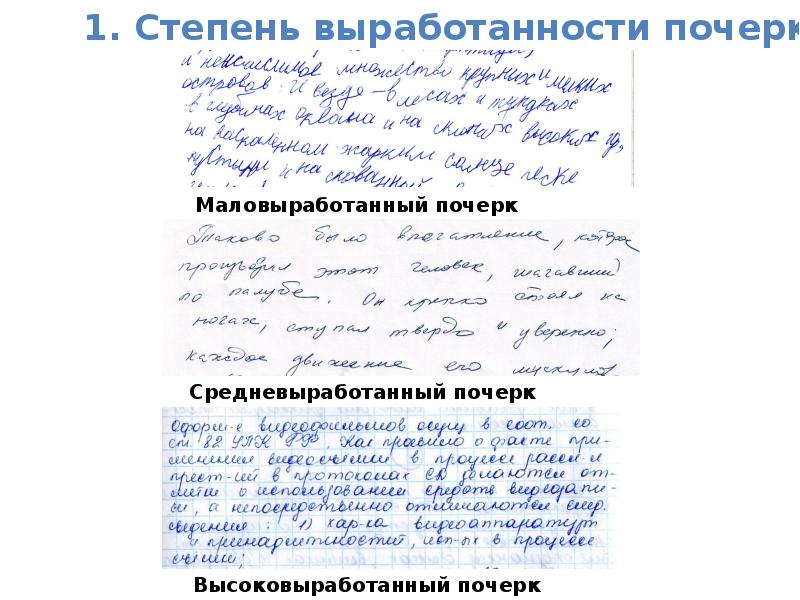 1. Степень выработанности почерк
и неисчислимое множество крупных и мелких
островов. И везде – в лесах и тундрах
в глубинах океана и на склонах высоких гор,
на накаленном жарким солнце песке
пустыни и на скованный
Маловыработанный почерк
Таково было впечатление, которое
производил этот человек, шагавший
по палубе. Он крепко стоял на
ногах, ступал твердо и уверенно;
каждое движение его мускулов
Средневыработанный почерк
Оформ-е видеофильмов осущ. в соот. со
ст. 82 УПК РФ. Как правило о факте при-
менения видеосъемки в процессе рассл-я
прест-ий в протоколах СД делаются от-
метки о использовании средств видеозапи-
си, а непосредственно отмечаются след.
сведения: 1) хар-ка видеоаппаратуры
и принадлежностей, исп-ых в процессе
съемки;
Высоковыработанный почерк